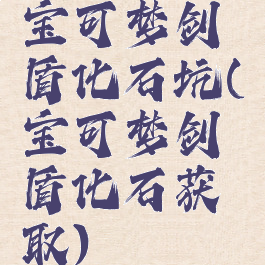 宝可梦剑
盾化石坑(
宝可梦剑
盾化石获
取)